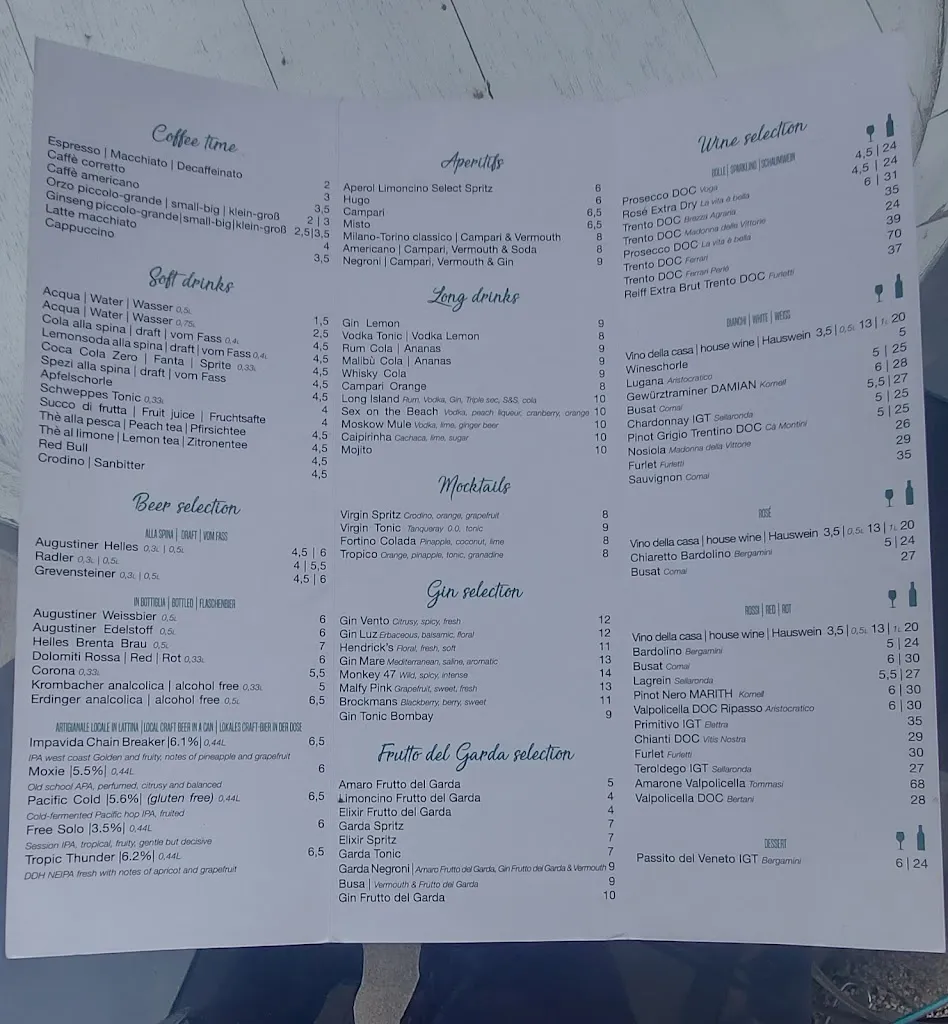 Coffee time
Espresso | Macchiato | Decaffeinato 2
Caffè corretto 3
Caffè americano 3,5
Orzo piccolo-grande | small-big | klein-groß 2 | 3
Ginseng piccolo-grande | small-big | klein-groß 2,5 | 3,5
Latte macchiato 4
Cappuccino 3,5
Soft drinks
Acqua | Water | Wasser 0,5L 1,5
Acqua | Water | Wasser 0,75L 2,5
Cola alla spina | draft | vom Fass 0,4L 4,5
Lemonsoda alla spina | draft | vom Fass 0,4L 4,5
Coca Cola Zero | Fanta | Sprite 0,33L 4,5
Spezi alla spina | draft | vom Fass 4,5
Apfelschorle 4,5
Schweppes Tonic 0,33L 4
Succo di frutta | Fruit juice | Fruchtsafte 4
Thè alla pesca | Peach tea | Pfirsichtee 4,5
Thè al limone | Lemon tea | Zitronentee 4,5
Red Bull 4,5
Crodino | Sanbitter 4,5
Beer selection
ALLA SPINA | DRAFT | VOM FASS
Augustiner Helles 0,3L | 0,5L 4,5 | 6
Radler 0,3L | 0,5L 4 | 5,5
Grevensteiner 0,3L | 0,5L 4,5 | 6
IN BOTTIGLIA | BOTTLED | FLASCHENBIER
Augustiner Weissbier 0,5L 6
Augustiner Edelstoff 0,5L 6
Helles Brenta Brau 0,5L 7
Dolomiti Rossa | Red | Rot 0,33L 6
Corona 0,33L 5,5
Krombacher analcolica | alcohol free 0,33L 5
Erdinger analcolica | alcohol free 0,5L 6,5
ARTIGIANALE LOCALE IN LATTINA | LOCAL CRAFT BEER IN A CAN | LOKALES CRAFT-BIER IN DER DOSE
Impavida Chain Breaker |6.1%| 0,44L 6,5
IPA west coast Golden and fruity, notes of pineapple and grapefruit
Moxie |5.5%| 0,44L 6
Old school APA, perfumed, citrusy and balanced
Pacific Cold |5.6%| (gluten free) 0,44L 6,5
Cold-fermented Pacific hop IPA, fruited
Free Solo |3.5%| 0,44L 6
Session IPA, tropical, fruity, gentle but decisive
Tropic Thunder |6.2%| 0,44L 6,5
DDH NEIPA fresh with notes of apricot and grapefruit
Aperitifs
Aperol Limoncino Select Spritz 6
Hugo 6
Campari 6,5
Misto 6,5
Milano-Torino classico | Campari & Vermouth 8
Americano | Campari, Vermouth & Soda 8
Negroni | Campari, Vermouth & Gin 9
Long drinks
Gin Lemon 9
Vodka Tonic | Vodka Lemon 8
Rum Cola | Ananas 9
Malibù Cola | Ananas 9
Whisky Cola 9
Campari Orange 8
Long Island Rum, Vodka, Gin, Triple sec, S&S, cola 10
Sex on the Beach Vodka, peach liqueur, cranberry, orange 10
Moskow Mule Vodka, lime, ginger beer 10
Caipirinha Cachaca, lime, sugar 10
Mojito 10
Mocktails
Virgin Spritz Crodino, orange, grapefruit 8
Virgin Tonic Tanqueray 0.0, tonic 9
Fortino Colada Pinapple, coconut, lime 8
Tropico Orange, pinapple, tonic, granadine 8
Gin selection
Gin Vento Citrusy, spicy, fresh 12
Gin Luz Erbaceous, balsamic, floral 12
Hendrick's Floral, fresh, soft 11
Gin Mare Mediterranean, saline, aromatic 13
Monkey 47 Wild, spicy, intense 14
Malfy Pink Grapefruit, sweet, fresh 13
Brockmans Blackberry, berry, sweet 11
Gin Tonic Bombay 9
Frutto del Garda selection
Amaro Frutto del Garda 5
Limoncino Frutto del Garda 4
Elixir Frutto del Garda 4
Garda Spritz 7
Elixir Spritz 7
Garda Tonic 7
Garda Negroni | Amaro Frutto del Garda, Gin Frutto del Garda & Vermouth 9
Busa | Vermouth & Frutto del Garda 9
Gin Frutto del Garda 10
Wine selection
BOLLE | SPARKLING | SCHAUMWEIN
Prosecco DOC Voga 4,5 | 24
Rosé Extra Dry La vita è bella 4,5 | 24
Trento DOC Brezza Agraria 6 | 31
Trento DOC Madonna delle Vittorie 35
Prosecco DOC La vita è bella 24
Trento DOC Ferrari 39
Trento DOC Ferrari Perlé 70
Reiff Extra Brut Trento DOC Furletti 37
BIANCHI | WHITE | WEISS
Vino della casa | house wine | Hauswein 3,5 | 0,5L 13 | 1L 20
Wineschorle 5
Lugana Aristocratico 5 | 25
Gewürztraminer DAMIAN Kornell 6 | 28
Busat Comai 5,5 | 27
Chardonnay IGT Sellaronda 5 | 25
Pinot Grigio Trentino DOC Cà Montini 5 | 25
Nosiola Madonna della Vittorie 26
Furlet Furletti 29
Sauvignon Comai 35
ROSÉ
Vino della casa | house wine | Hauswein 3,5 | 0,5L 13 | 1L 20
Chiaretto Bardolino Bergamini 5 | 24
Busat Comai 27
ROSSI | RED | ROT
Vino della casa | house wine | Hauswein 3,5 | 0,5L 13 | 1L 20
Bardolino Bergamini 5 | 24
Busat Comai 6 | 30
Lagrein Sellaronda 5,5 | 27
Pinot Nero MARITH Kornell 6 | 30
Valpolicella DOC Ripasso Aristocratico 6 | 30
Primitivo IGT Elettra 35
Chianti DOC Vitis Nostra 29
Furlet Furletti 30
Teroldego IGT Sellaronda 27
Amarone Valpolicella Tommasi 68
Valpolicella DOC Bertani 28
DESSERT
Passito del Veneto IGT Bergamini 6 | 24